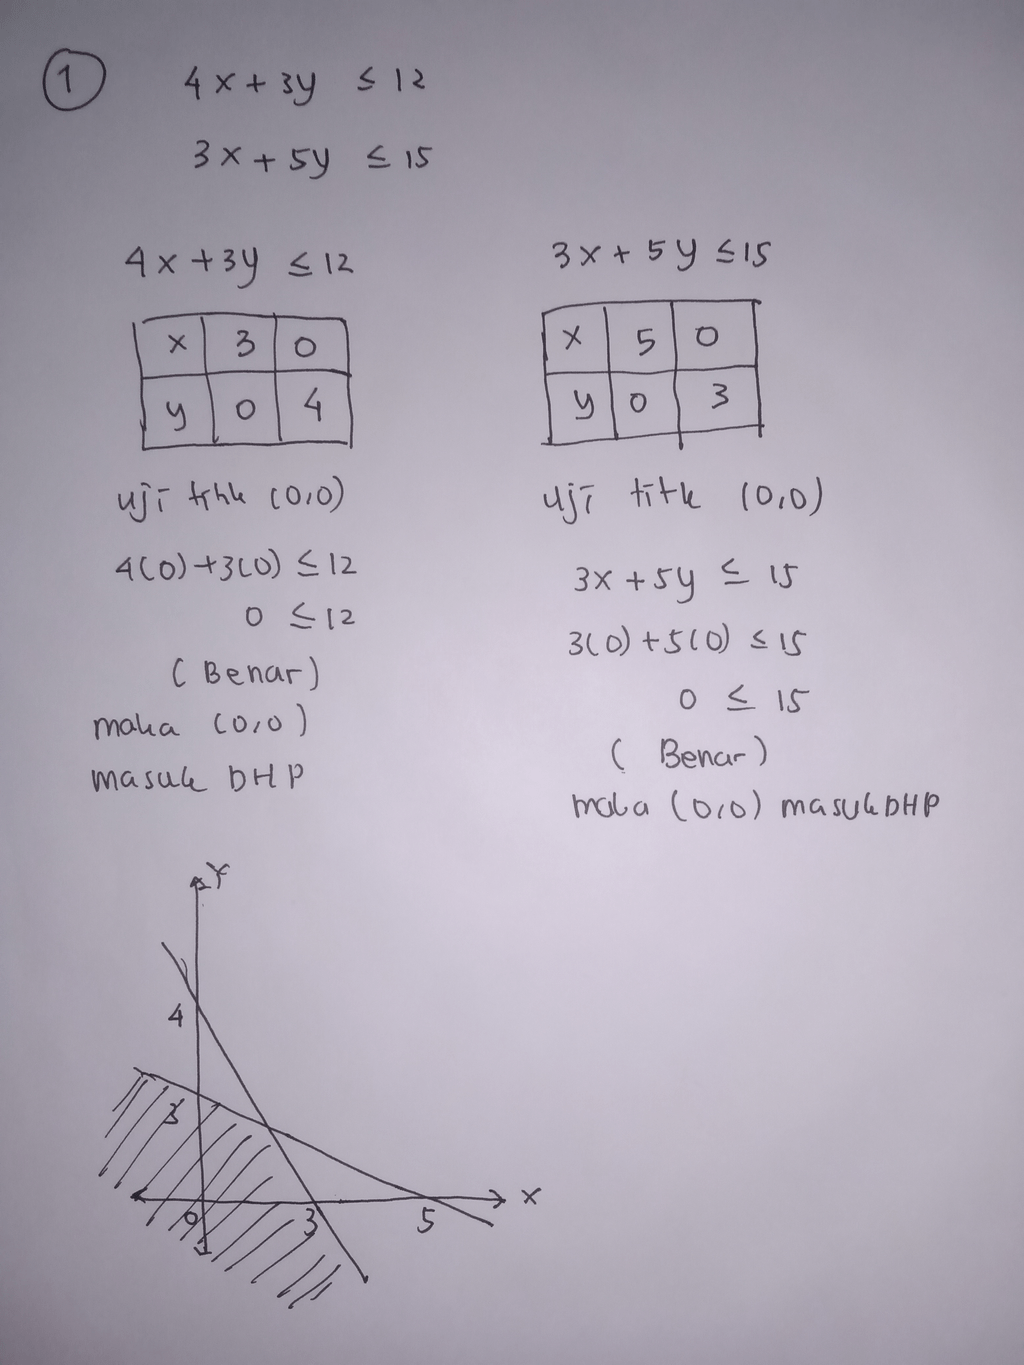 1
4x + 3y ≤ 12
3x + 5y ≤ 15
4x + 3y ≤ 12
x 3 0
y 0 4
uji titik (0,0)
4(0) + 3(0) ≤ 12
0 ≤ 12
(Benar)
maka (0,0)
masuk DHP
3x + 5y ≤ 15
x 5 0
y 0 3
uji titk (0,0)
3x + 5y ≤ 15
3(0) + 5(0) ≤ 15
0 ≤ 15
(Benar)
maka (0,0) masuk DHP
Y
4
3
0 3 5 X